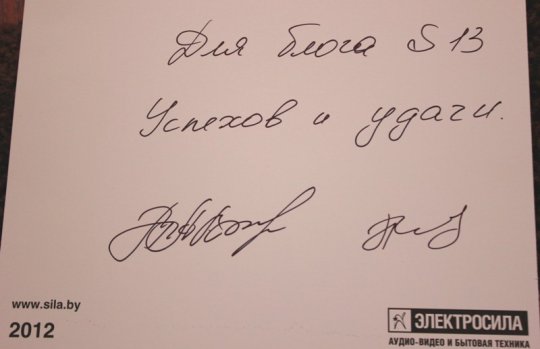 Для блога S13
Успехов и удачи.
www.sila.by
2012
ЭЛЕКТРОСИЛА
АУДИО-ВИДЕО И БЫТОВАЯ ТЕХНИКА